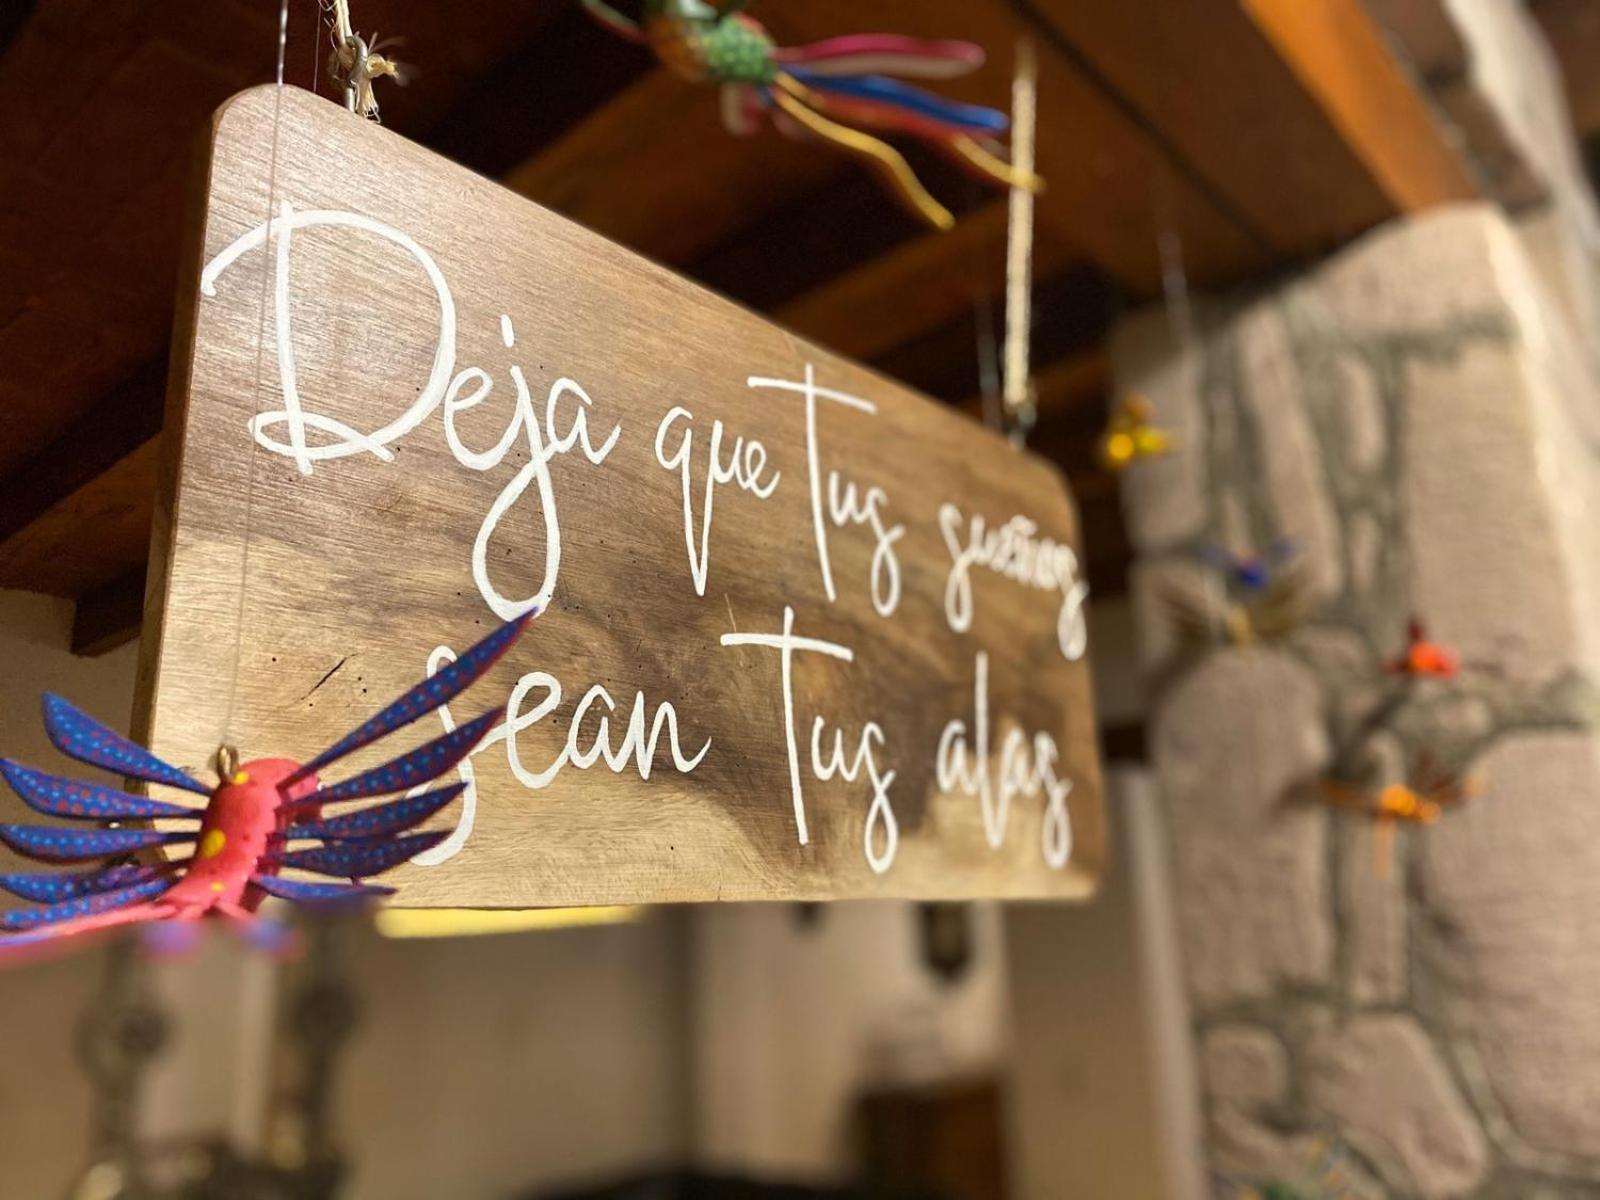 Deja que Tus sueños
sean Tus alas